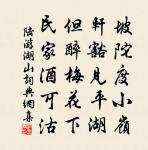 坡陀度小嶺
軒豁見平湖
但醉梅花下
民家酒可沽
陸游湖山詞典網集